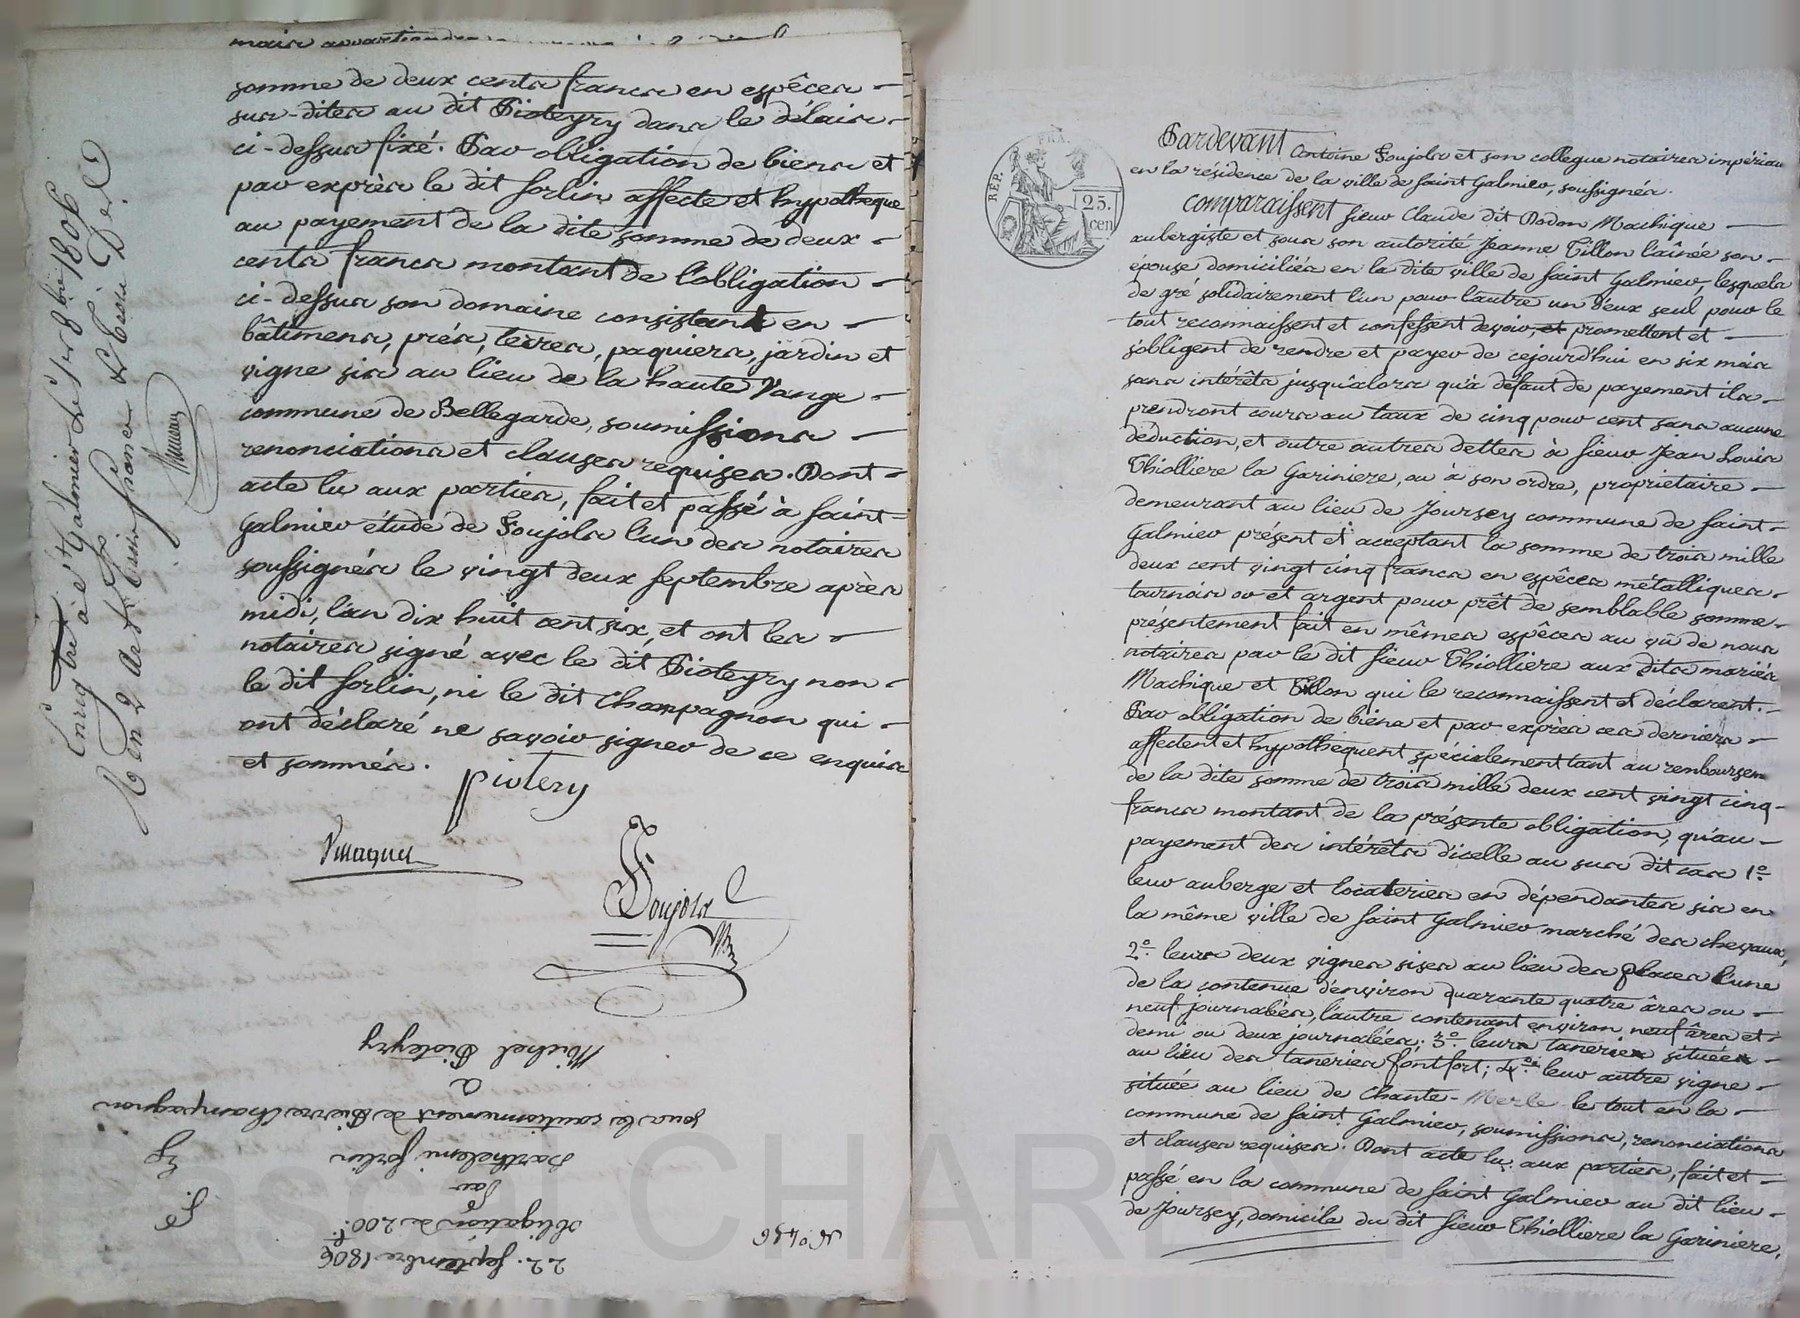 somme de deux cents francs en espêces
sus-dites au dit Pioteyry dans le délais
ci-dessus fixé. Par obligation de biens et
par exprès le dit Sorlin affecte et hypotheque
au payement de la dite somme de deux
cents francs montant de l'obligation
ci-dessus son domaine consistant en
bâtimens, prés, terres, paquiers, jardin et
vigne sis au lieu de la haute Vange
commune de Bellegarde, soumissions
renonciations et clauses requises. Dont
acte lu aux parties, fait et passé à Saint
Galmier étude de Poujols l'un des notaires
soussignés le vingt deux Septembre après
midi, l'an dix huit cent six, et ont les
notaires signé avec le dit Pioteyry non
le dit Sorlin, ni le dit Champagnon qui
ont déclaré ne savoir signer de ce enquis
et sommés.
piotery
Poujols
Enreg.tré à S.t Galmier le 8bre 1806
22. Septembre 1806
N.o 496
obligation de 200.f
par
Barthelemi Sorlin
sous le cautionnement de Pierre Champagnon
à
Michel Pioteyry
REP. FRA.
25.
cen
Pardevant Antoine Poujols et son collegue notaires impériaux
en la résidence de la ville de Saint Galmier, soussignés.
Comparaissent Sieur Claude dit Dodon Machique
aubergiste et sous son autorité Jeanne Tillon l'aînée son
épouse domiciliés en la dite ville de Saint Galmier, lesquels
de gré solidairement l'un pour l'autre un d'eux seul pour le
tout reconnaissent et confessent devoir, et promettent et
s'obligent de rendre et payer de cejourd'hui en six mois
sans intérêts jusqu'alors qu'à défaut de payement ils
prendront cours au taux de cinq pour cent sans aucune
déduction, et outre autres dettes à Sieur Jean Louis
Thiolliere la Gariniere, ou à son ordre, propriétaire
demeurant au lieu de Joursey commune de Saint
Galmier présent et acceptant la somme de trois mille
deux cent vingt cinq francs en espêces métalliques
tournois or et argent pour prêt de semblable somme
présentement fait en mêmes espêces au vü de nous
notaires par le dit Sieur Thiolliere aux dits mariés
Machique et Tillon qui le reconnaissent et déclarent.
Par obligation de biens et par exprès ces derniers
affectent et hypothequent spécialement tant au remboursem
de la dite somme de trois mille deux cent vingt cinq
francs montant de la présente obligation, qu'au
payement des intérêts d'icelle au sus dit cas 1.o
leur auberge et locateries en dépendantes sis en
la même ville de Saint Galmier marché des chevaux,
2.o leurs deux vignes sises au lieu des places l'une
de la contenue d'environ quarante quatre âres ou
neuf journalées, l'autre contenant environ neuf âres et
demi ou deux journalées; 3.o leur tanerie située
au lieu des taneries fontfort; 4.o leur autre vigne
située au lieu de Chante-Merle le tout en la
commune de Saint Galmier, soumissions, renonciations
et clauses requises. Dont acte lu aux parties, fait et
passé en la commune de Saint Galmier au dit lieu
de Joursey, domicile du dit Sieur Thiolliere la Gariniere,